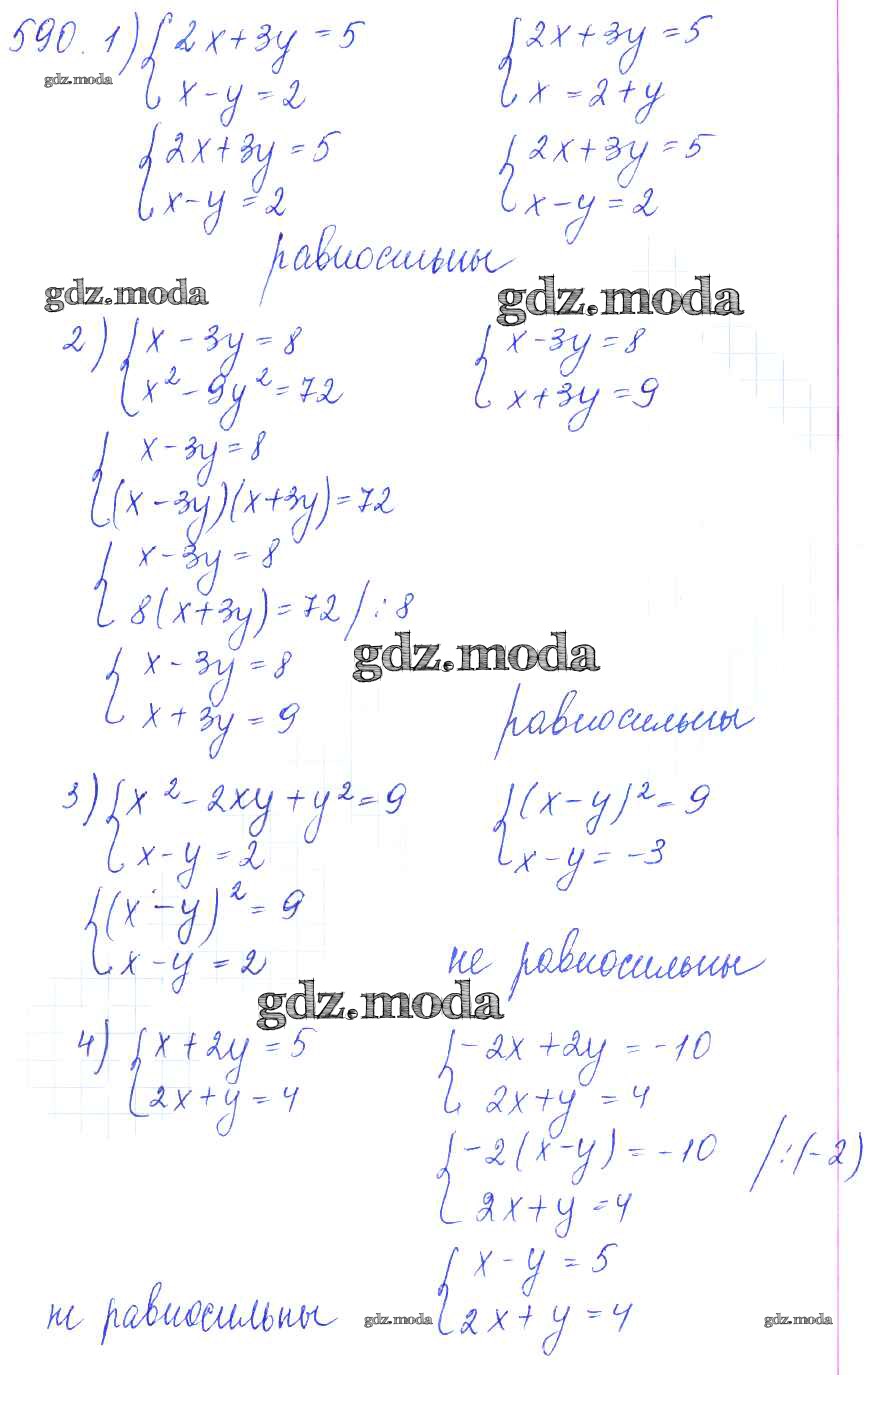 590. 1) { 2x+3y = 5    { 2x+3y = 5
gdz.moda
x-y = 2    x = 2+y
{ 2x+3y = 5    { 2x+3y = 5
x-y = 2    x-y = 2
равносильны
gdz.moda    gdz.moda
2) { x - 3y = 8    { x-3y = 8
x² - 9y² = 72    x+3y = 9
{ x-3y = 8
(x-3y)(x+3y) = 72
{ x-3y = 8
8(x+3y) = 72 /:8
gdz.moda
{ x-3y = 8
x+3y = 9    равносильны
3) { x² - 2xy + y² = 9    { (x-y)² = 9
x-y = 2    x-y = -3
{ (x-y)² = 9
x-y = 2    не равносильны
gdz.moda
4) { x+2y = 5    { -2x+2y = -10
2x+y = 4    2x+y = 4
{ -2(x-y) = -10 /:(-2)
2x+y = 4
{ x-y = 5
не равносильны    gdz.moda    2x+y = 4    gdz.moda